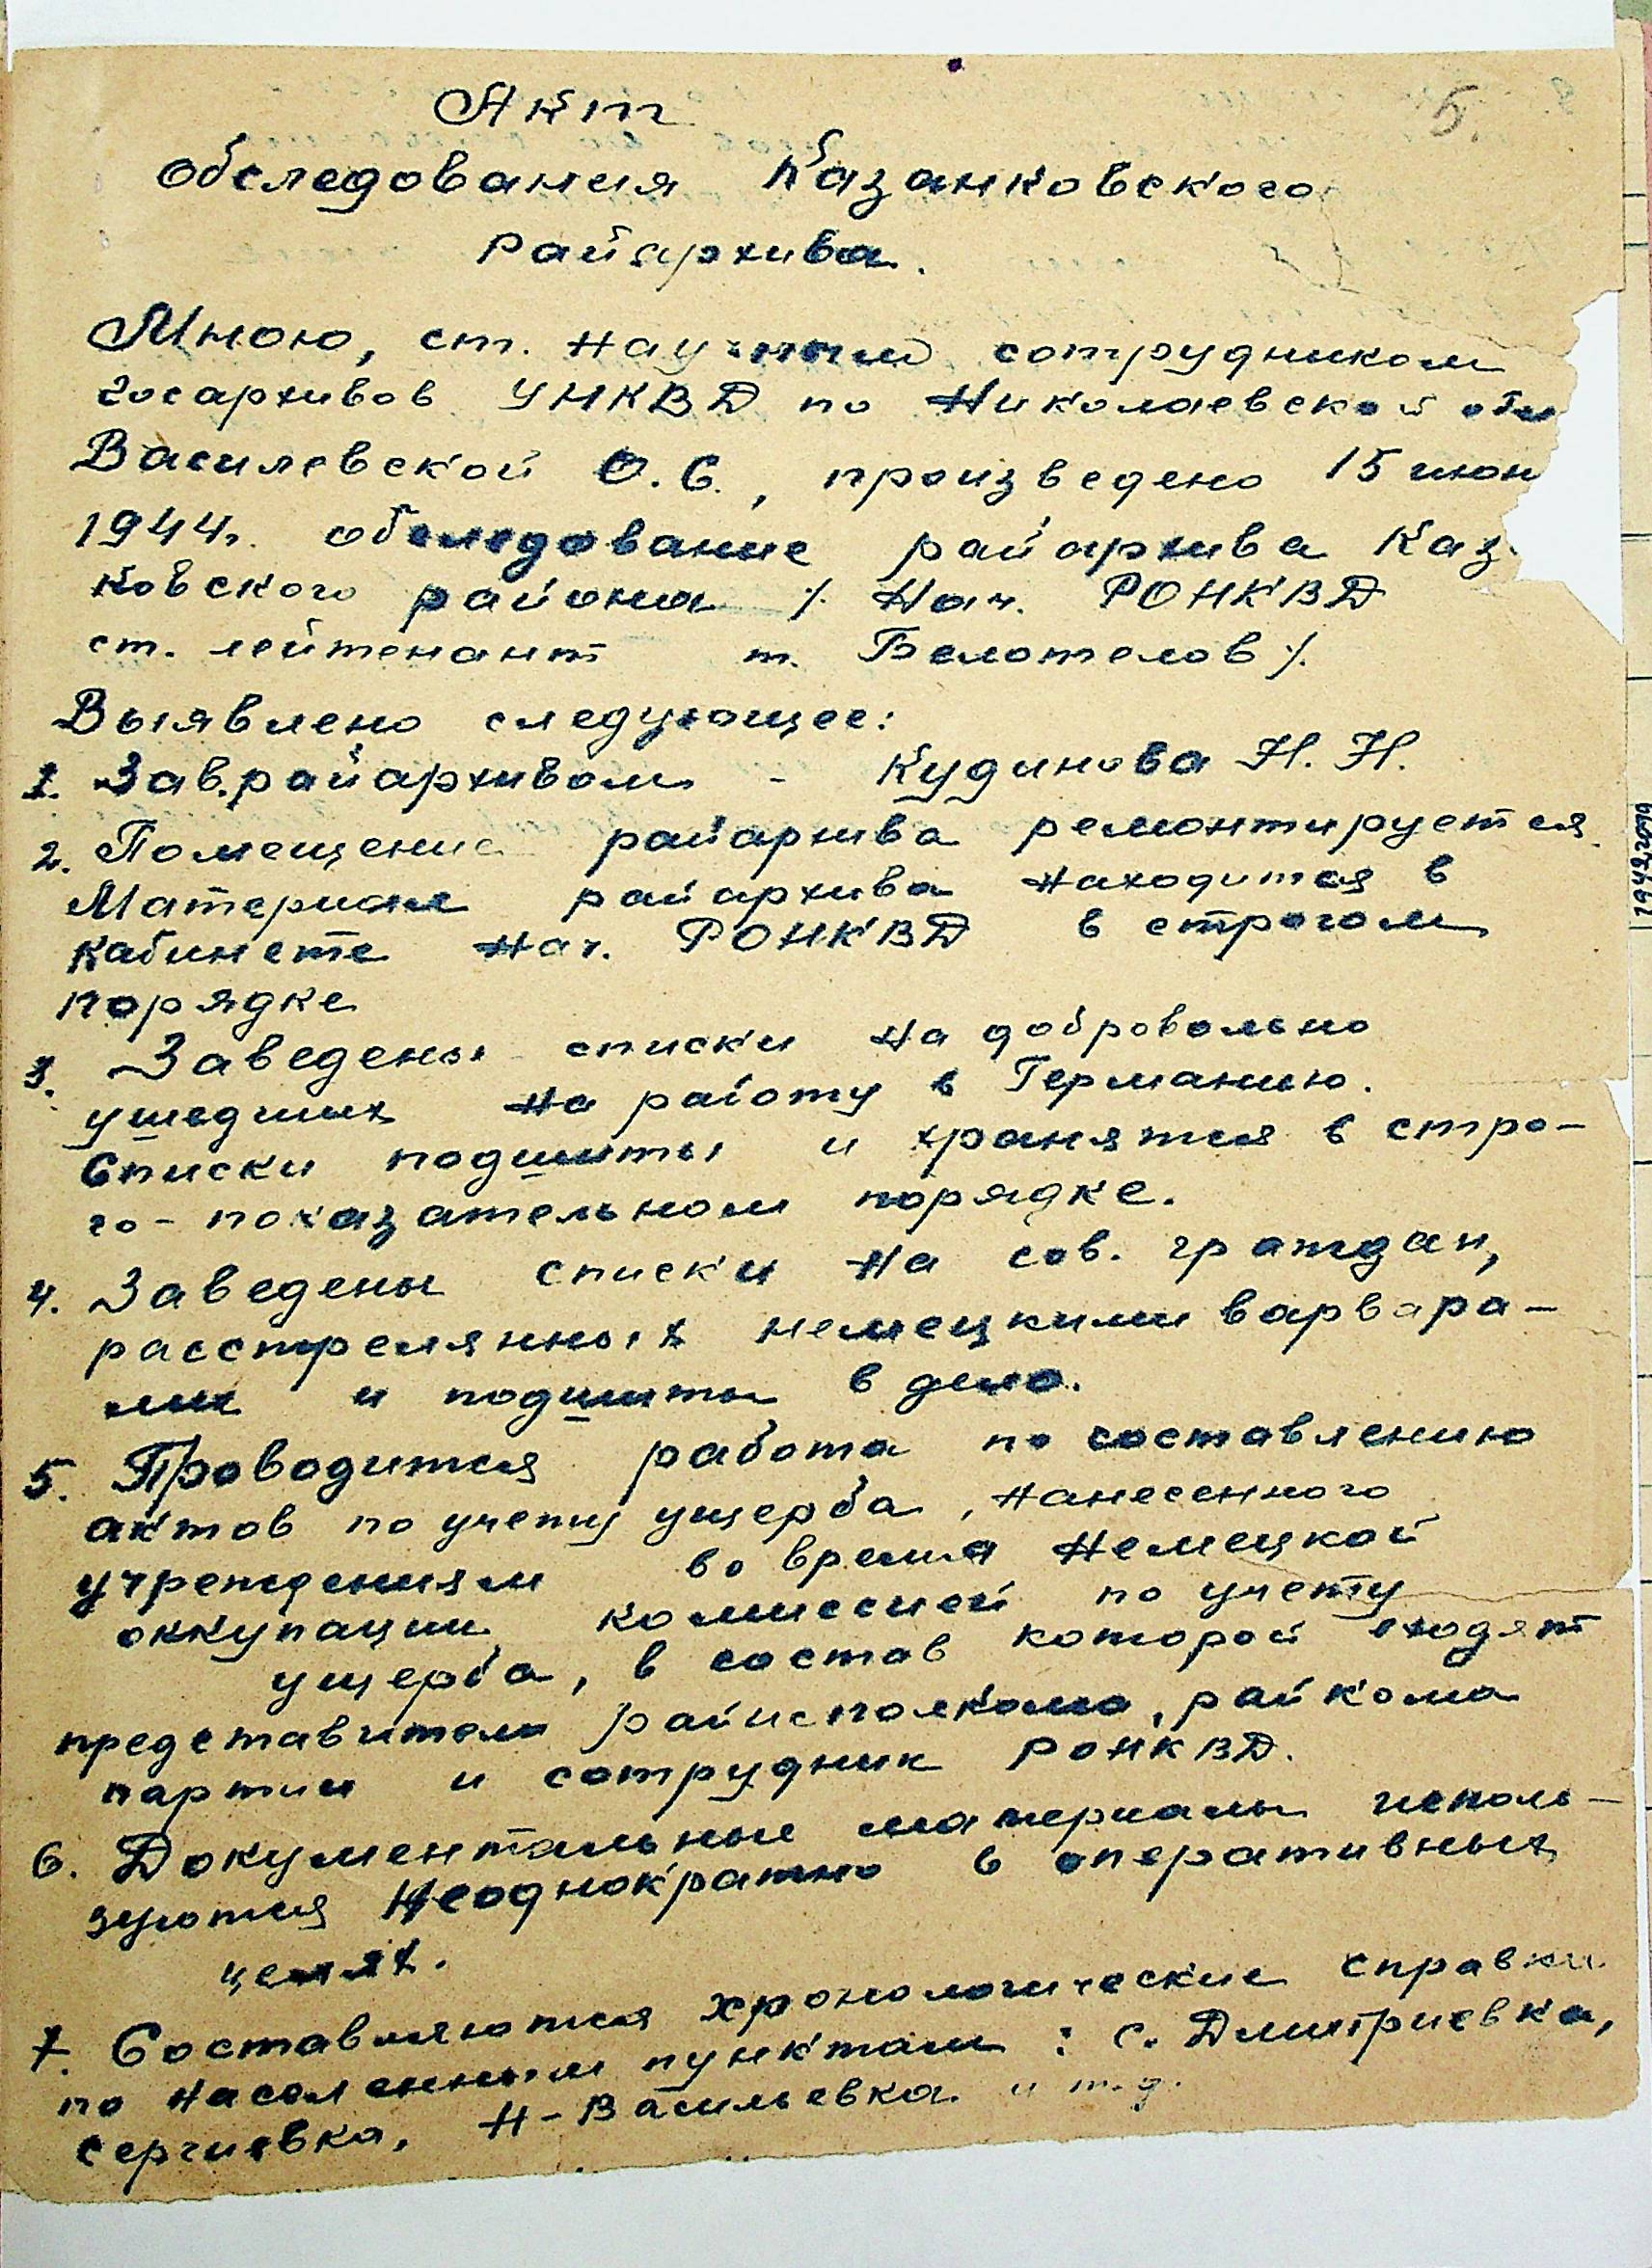 5.
Акт
Обследования Казанковского
Райархива.
Мною, ст. научным сотрудником
Госархивов УНКВД по Николаевской обл
Василевской О.С., произведено 15 июн
1944г. обследование райархива Каз
ковского района /. Нач. РОНКВД
ст. лейтенант т. Белотелов /.
Выявлено следующее:
1. Зав.райархивом - Кудинова Н. Н.
2. Помещение райархива ремонтируется.
Материал райархива находится в
кабинете нач. РОНКВД в строгом
порядке
3. Заведены списки на добровольно
ушедших на работу в Германию.
Списки подшиты и хранятся в стро-
го-показательном порядке.
4. Заведены списки на сов. граждан,
расстрелянных немецкими варвара-
ми и подшиты в дело.
5. Проводится работа по составлению
актов по учету ущерба, нанесенного
учреждениям во время немецкой
оккупации комиссией по учету
ущерба, в состав которой входят
представители райисполкома, райкома
партии и сотрудник РОНКВД.
6. Документальные материалы исполь-
зуются неоднократно в оперативных
целях.
7. Составляются хронологические справки
по населенным пунктам: с. Дмитриевка,
Сергиевка, Н-Васильевка и т.д.